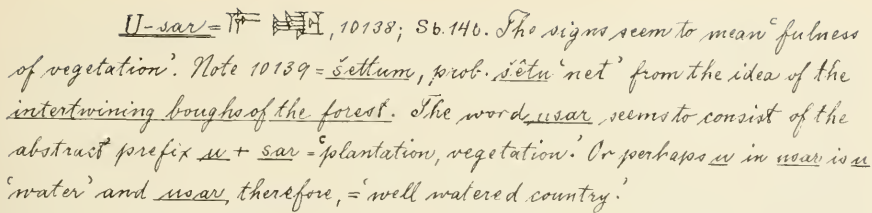 U-sar = , 10138; Sb. 140. The signs seem to mean 'fulness
of vegetation'. Note 10139 = šettum, prob. šêtu 'net' from the idea of the
intertwining boughs of the forest. The word usar seems to consist of the
abstract prefix u + sar = 'plantation, vegetation.' Or perhaps u in usar is u
'water' and usar, therefore, = 'well watered country.'